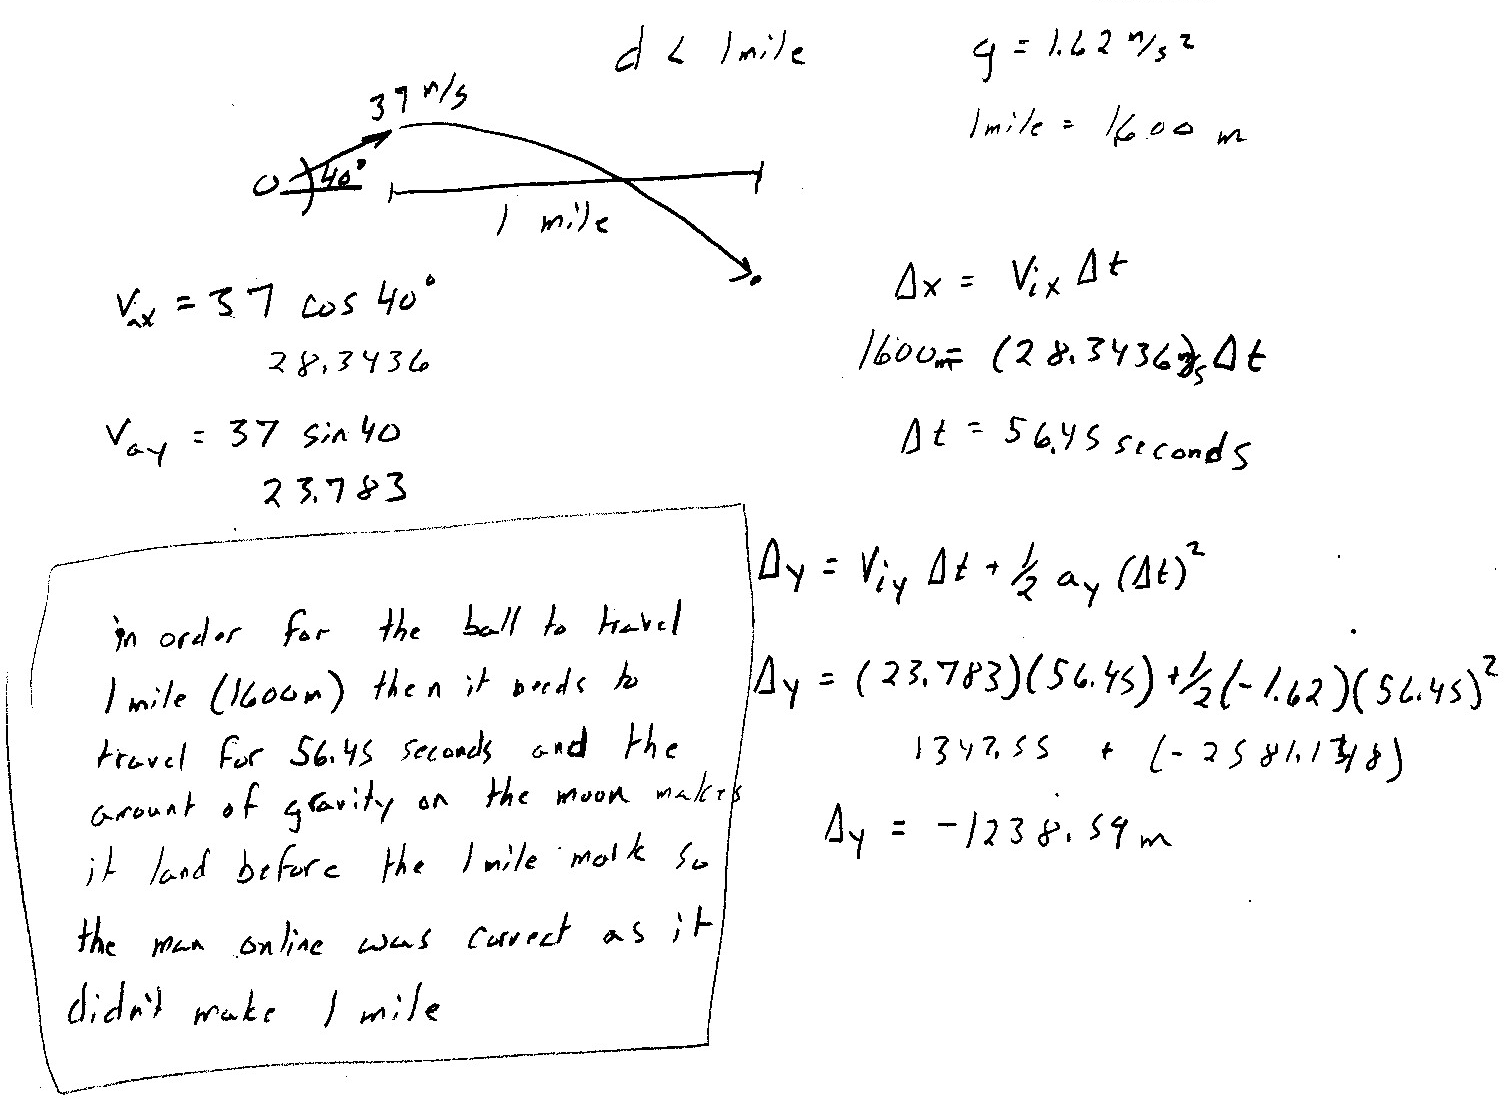 d < 1 mile
g = 1.62 m/s²
37 m/s
1 mile = 1600 m
40°
1 mile
Δx = Vix Δt
Vax = 37 cos 40°
28.3436
1600m = (28.3436) m/s Δt
Vay = 37 sin 40
Δt = 56.45 seconds
23.783
Δy = Viy Δt + ½ ay (Δt)²
Δy = (23.783)(56.45) + ½(-1.62)(56.45)²
Δy = -1238.59 m
in order for the ball to travel
1 mile (1600m) then it needs to
travel for 56.45 seconds and the
amount of gravity on the moon makes
it land before the 1 mile mark so
the man online was correct as it
didn't make 1 mile